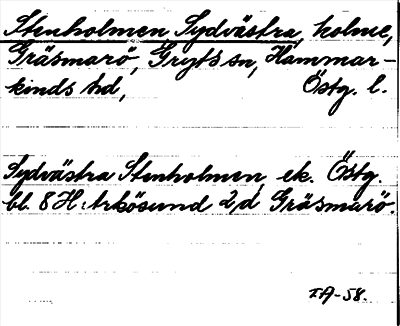 Stenholmen Sydvästra, holme,
Gräsmarö, Gryts sn, Hammar-
kinds hd, Östg. l.
Sydvästra Stenholmen, ek. Östg.
bl. 8 H: Arkösund 2,d Gräsmarö.
I.A-58.